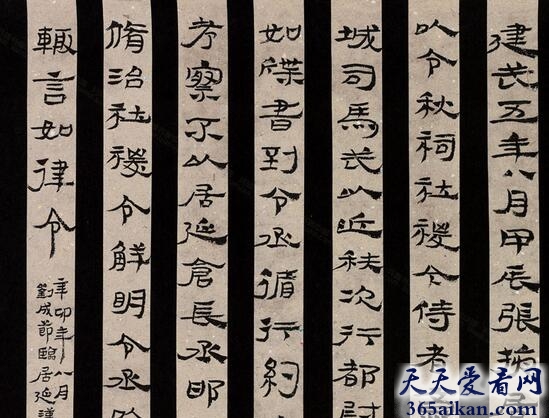 建武五年八月甲辰張掖居
以令秋祠社稷今侍者
城司馬武以近秩次行都尉
如牒書到令丞循行約
考察不以居延倉長丞即
脩治社稷令鮮明令丞
輒言如律令
辛卯年八月
劉成節臨居延漢
天天爱看网
365aikan.com